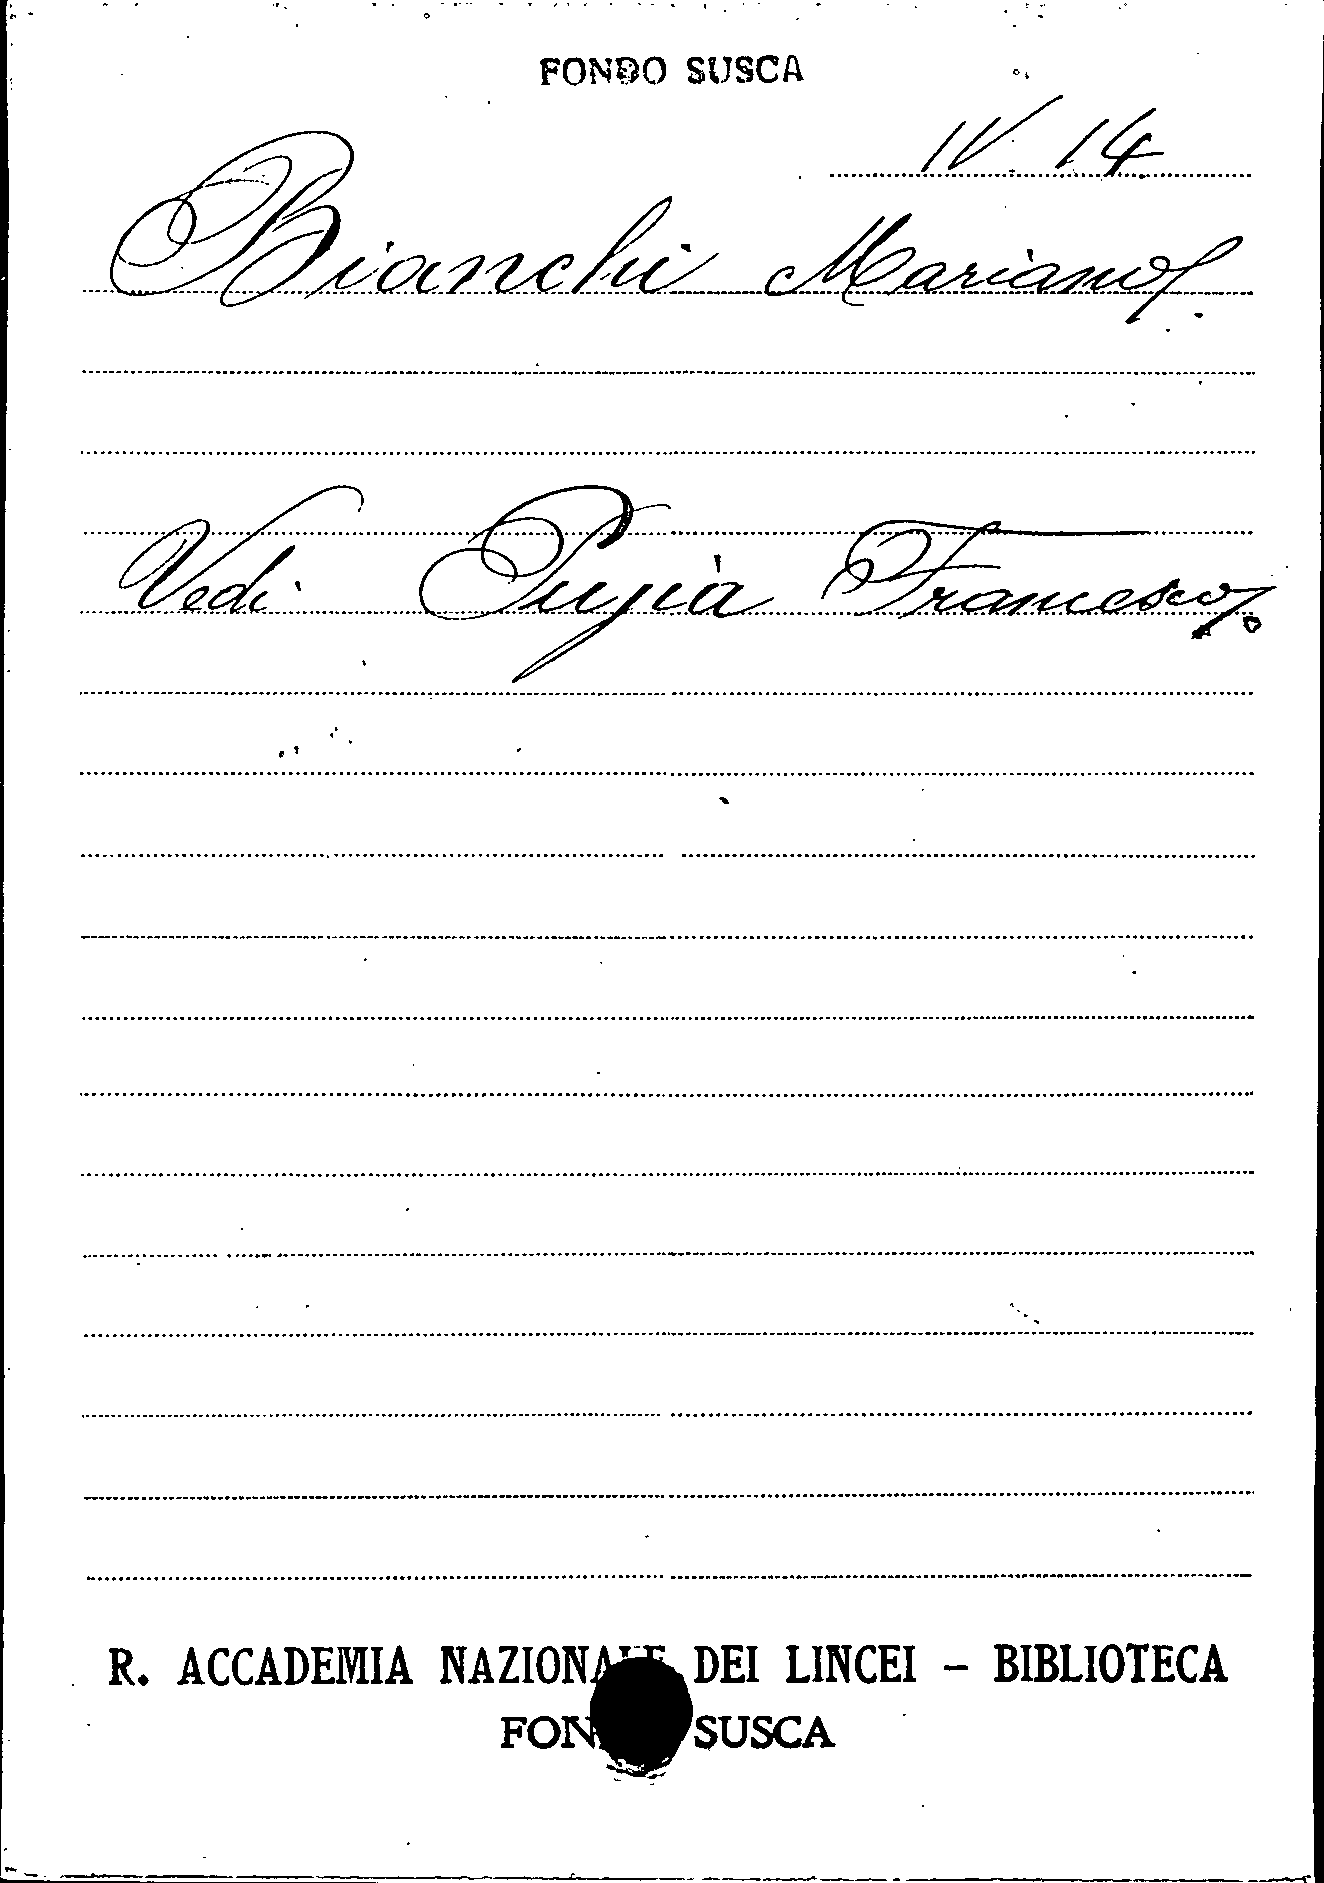 FONDO SUSCA
IV. 14
Bianchi Mariano
Vedi Pujia Francesco.
R. ACCADEMIA NAZIONALE DEI LINCEI - BIBLIOTECA
FONDO SUSCA